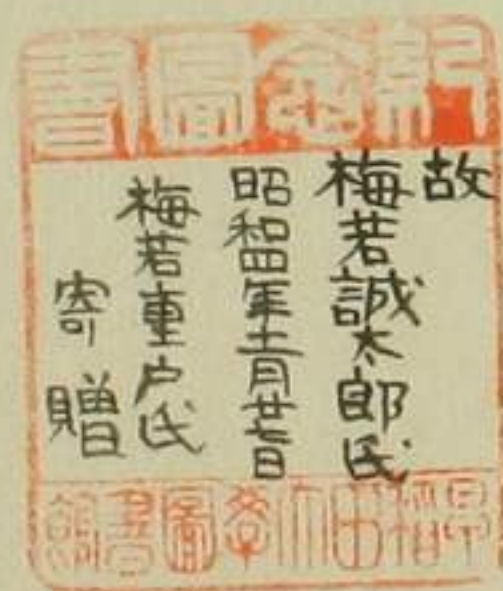 紀念圖書
故
梅若誠太郎氏
昭和四年十一月廿七日
梅若重戸氏
寄贈
早稲田大學圖書館